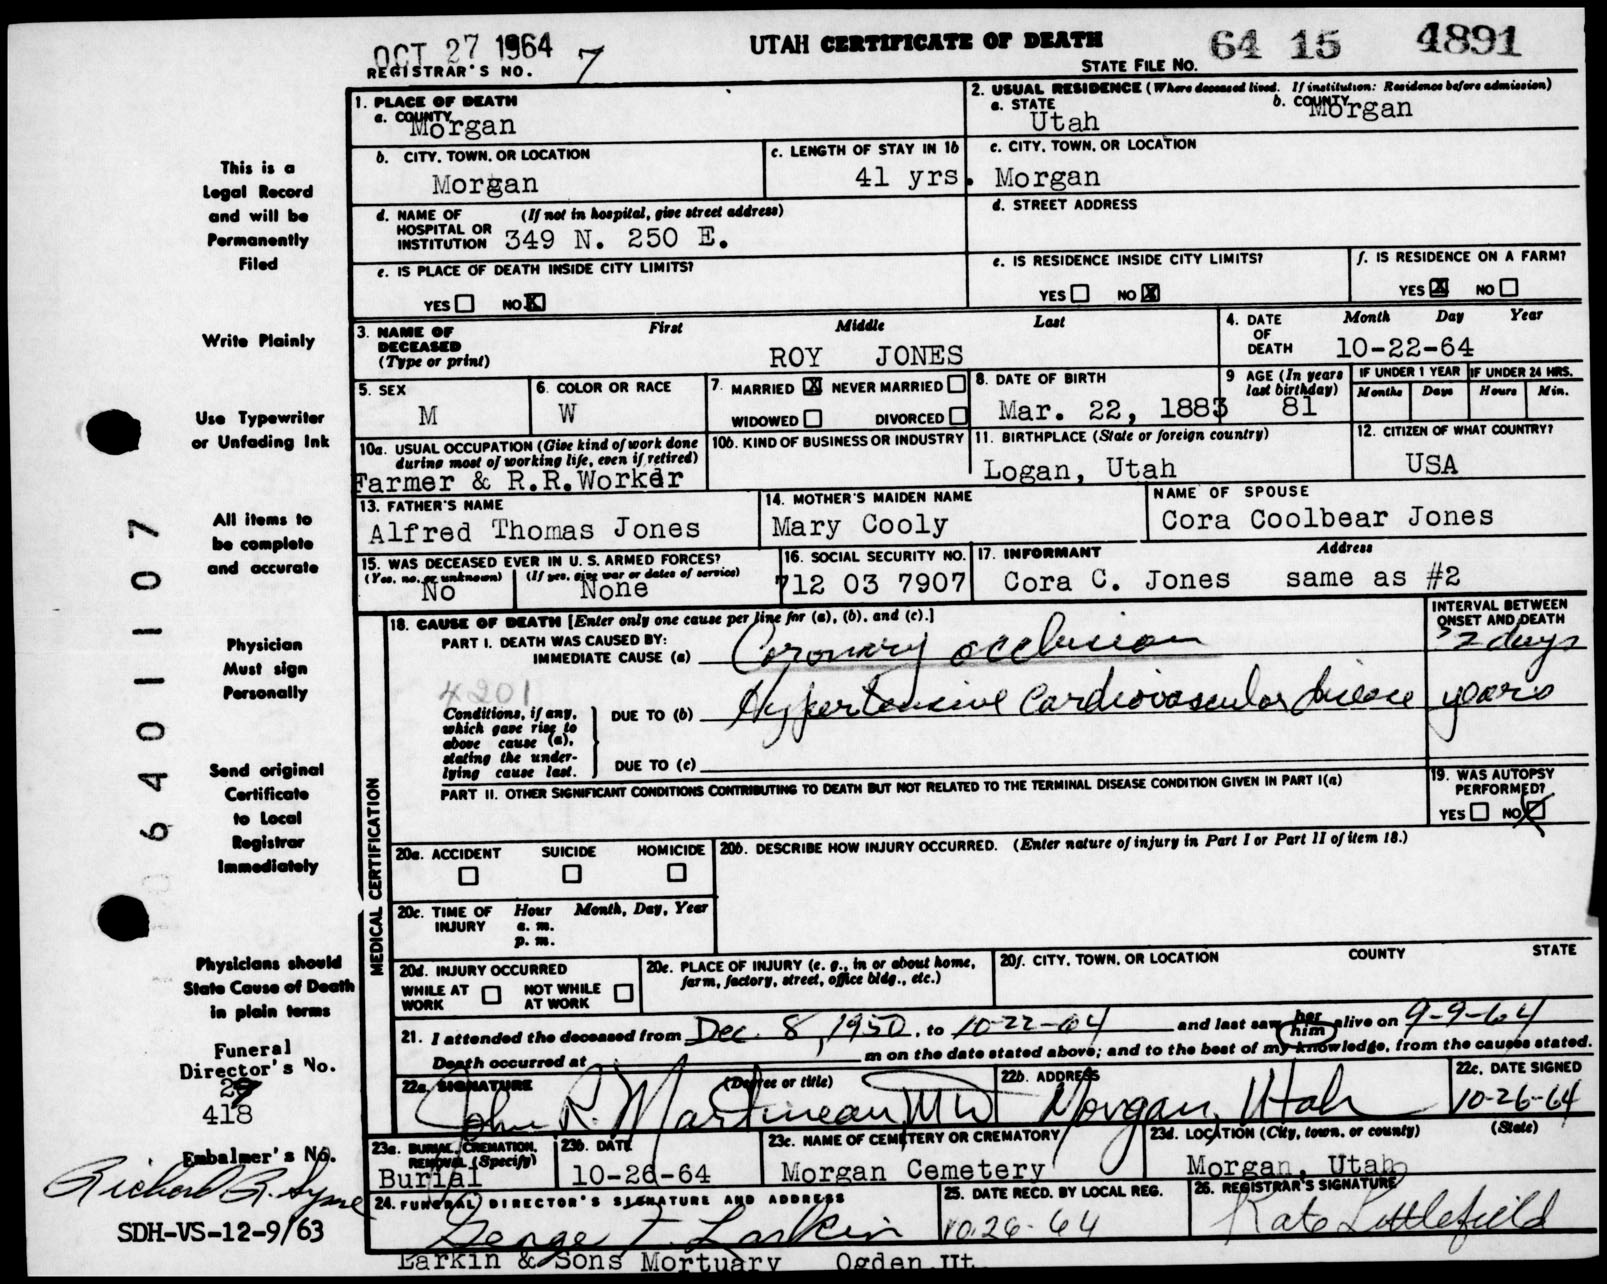 OCT 27 1964 UTAH CERTIFICATE OF DEATH 64 15 4891
REGISTRAR'S NO. 7 STATE FILE NO.
1. PLACE OF DEATH
a. COUNTY
Morgan
2. USUAL RESIDENCE (Where deceased lived. If institution: Residence before admission)
a. STATE b. COUNTY
Utah Morgan
b. CITY, TOWN, OR LOCATION c. LENGTH OF STAY IN 1b c. CITY, TOWN, OR LOCATION
Morgan 41 yrs. Morgan
d. NAME OF (If not in hospital, give street address) d. STREET ADDRESS
HOSPITAL OR
INSTITUTION 349 N. 250 E.
e. IS PLACE OF DEATH INSIDE CITY LIMITS? e. IS RESIDENCE INSIDE CITY LIMITS? f. IS RESIDENCE ON A FARM?
YES NO X YES NO X YES X NO
3. NAME OF First Middle Last 4. DATE Month Day Year
DECEASED OF
(Type or print) ROY JONES DEATH 10-22-64
5. SEX 6. COLOR OR RACE 7. MARRIED X NEVER MARRIED 8. DATE OF BIRTH 9 AGE (In years last birthday) IF UNDER 1 YEAR IF UNDER 24 HRS.
Months Days Hours Min.
M W WIDOWED DIVORCED Mar. 22, 1883 81
10a. USUAL OCCUPATION (Give kind of work done during most of working life, even if retired) 10b. KIND OF BUSINESS OR INDUSTRY 11. BIRTHPLACE (State or foreign country) 12. CITIZEN OF WHAT COUNTRY?
Farmer & R.R.Worker Logan, Utah USA
13. FATHER'S NAME 14. MOTHER'S MAIDEN NAME NAME OF SPOUSE
Alfred Thomas Jones Mary Cooly Cora Coolbear Jones
15. WAS DECEASED EVER IN U. S. ARMED FORCES? 16. SOCIAL SECURITY NO. 17. INFORMANT Address
(Yes, no, or unknown) (If yes, give war or dates of service)
No None 712 03 7907 Cora C. Jones same as #2
18. CAUSE OF DEATH [Enter only one cause per line for (a), (b), and (c).] INTERVAL BETWEEN ONSET AND DEATH
PART I. DEATH WAS CAUSED BY:
IMMEDIATE CAUSE (a) Coronary occlusion 2 days
4201
Conditions, if any, which gave rise to above cause (a), stating the underlying cause last.
DUE TO (b) Hypertensive Cardiovascular disease years
DUE TO (c)
PART II. OTHER SIGNIFICANT CONDITIONS CONTRIBUTING TO DEATH BUT NOT RELATED TO THE TERMINAL DISEASE CONDITION GIVEN IN PART I(a)
19. WAS AUTOPSY PERFORMED?
YES NO X
MEDICAL CERTIFICATION
20a. ACCIDENT SUICIDE HOMICIDE 20b. DESCRIBE HOW INJURY OCCURRED. (Enter nature of injury in Part I or Part II of item 18.)
20c. TIME OF INJURY Hour Month, Day, Year
a. m.
p. m.
20d. INJURY OCCURRED 20e. PLACE OF INJURY (e. g., in or about home, farm, factory, street, office bldg., etc.) 20f. CITY, TOWN, OR LOCATION COUNTY STATE
WHILE AT WORK NOT WHILE AT WORK
21. I attended the deceased from Dec. 8, 1950, to 10-22-64 and last saw her him alive on 9-9-64
Death occurred at m on the date stated above; and to the best of my knowledge, from the causes stated.
22a. SIGNATURE (Degree or title) 22b. ADDRESS 22c. DATE SIGNED
John R. Martineau, MD Morgan, Utah 10-26-64
23a. BURIAL, CREMATION, REMOVAL (Specify) 23b. DATE 23c. NAME OF CEMETERY OR CREMATORY 23d. LOCATION (City, town, or county) (State)
Burial 10-26-64 Morgan Cemetery Morgan, Utah
24. FUNERAL DIRECTOR'S SIGNATURE AND ADDRESS 25. DATE RECD. BY LOCAL REG. 26. REGISTRAR'S SIGNATURE
George F. Larkin 10-26-64 Kate Littlefield
Larkin & Sons Mortuary Ogden, Ut.
This is a
Legal Record
and will be
Permanently
Filed
Write Plainly
Use Typewriter
or Unfading Ink
All items to
be complete
and accurate
Physician
Must sign
Personally
Send original
Certificate
to Local
Registrar
Immediately
Physicians should
State Cause of Death
in plain terms
Funeral
Director's No.
418
Embalmer's No.
SDH-VS-12-9/63
06401107